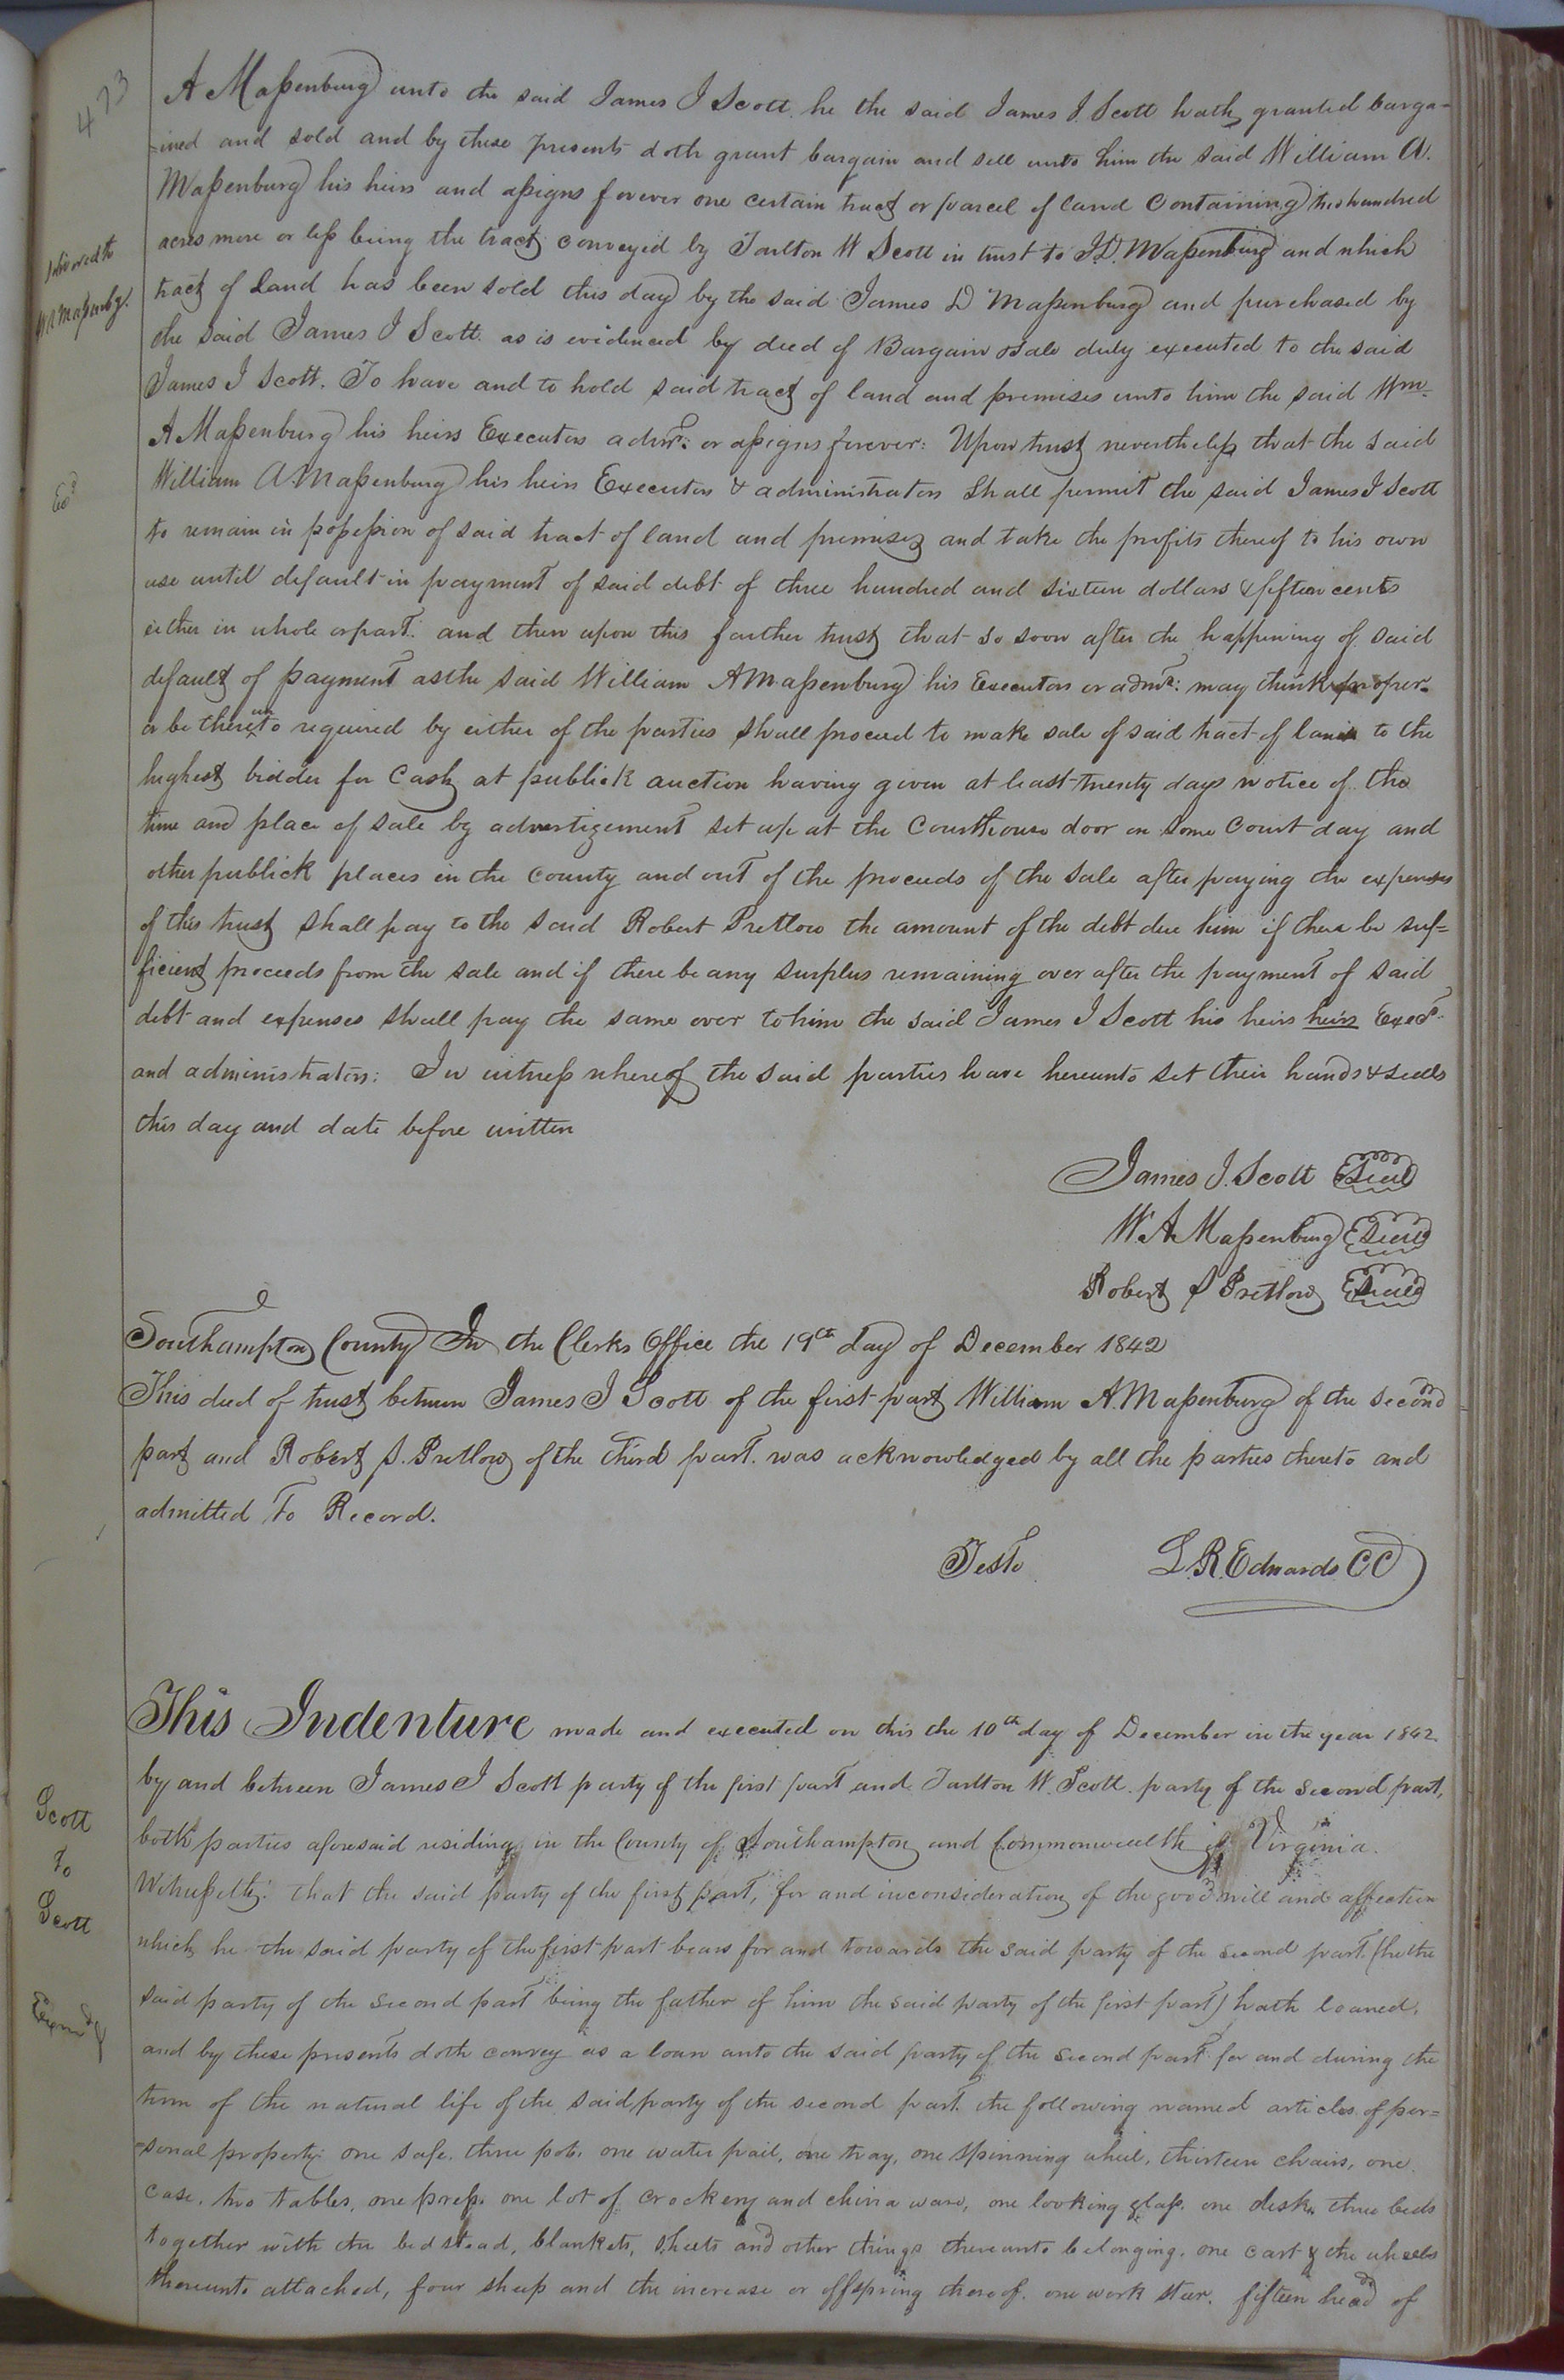 473
A Maßenburg unto the said James J Scott. he the said James J. Scott hath granted barga-
=ined and sold and by these presents doth grant bargain and sell unto him the said William A.
Maßenburg his heirs and aßigns forever one certain tract or parcel of land Containing two hundred
acres more or leß being the tract conveyed by Tarlton W Scott in trust to J.D. Maßenburg and which
tract of Land has been sold this day by the said James D Maßenburg and purchased by
the said James J Scott. as is evidenced by deed of Bargain & Sale duly executed to the said
James J Scott. To have and to hold said tract of land and premises unto him the said Wm.
A Maßenburg his heirs Executors admrs: or aßigns forever: Upon trust nevertheleß that the said
William A Maßenburg his heirs Executors & administrators Shall permit the said James J Scott
to remain in poßeßion of said tract of land and premises and take the profits thereof to his own
use until default in payment of said debt of three hundred and sixteen dollars & fifteen cents
either in whole or part. and then upon this further trust that so soon after the happening of said
default of payment as the said William A Maßenburg his Executors or admrs: may think proper.
or be thereunto required by either of the parties shall proceed to make sale of said tract of land to the
highest bidder for Cash at publick auction having given at least twenty days notice of the
time and place of sale by advertizement set up at the Courthouse door on some Court day and
other publick places in the County and out of the proceeds of the sale after paying the expenses
of this trust shall pay to the said Robert Pretlow the amount of the debt due him if there be suf=
ficient proceeds from the sale and if there be any surplus remaining over after the payment of said
debt and expenses shall pay the same over to him the said James J Scott his heirs heirs Execrs.
and administrators: In witneß whereof the said parties have hereunto set their hands & seals
this day and date before written
James J. Scott Seal
W. A. Maßenburg Seal
Robert S Pretlow Seal
Southampton County In the Clerks Office the 19th day of December 1842
This deed of trust between James J Scott of the first part William A. Maßenburg of the second
part and Robert S. Pretlow of the third part. was acknowledged by all the parties thereto and
admitted To Record.
Teste L. R. Edwards CC
Delivered to
W A Maßenbg.
Exd
This Indenture made and executed on this the 10th day of December in the year 1842.
by and between James J Scott party of the first part and Tarlton W. Scott. party of the second part,
both parties aforesaid residing in the County of Southampton and Commonwealth of Virginia.
Witneßeth: that the said party of the first part, for and in consideration of the good will and affection
which he the said party of the first part bears for and towards the said party of the second part. (he the
said party of the second part being the father of him the said party of the first part) hath loaned,
and by these presents doth convey as a loan unto the said party of the second part for and during the
term of the natural life of the said party of the second part. the following named articles of per=
=sonal property: one safe. three pots. one water pail, one tray, one spinning wheel, thirteen chairs, one
case. two tables, one preß. one lot of crockery and china ware, one looking glaß. one desk. three beds
together with the bedstead, blankets, sheets and other things thereunto belonging. one cart & the wheels
thereunto attached, four sheep and the increase or offspring thereof. one work steer. fifteen head of
Scott
To
Scott